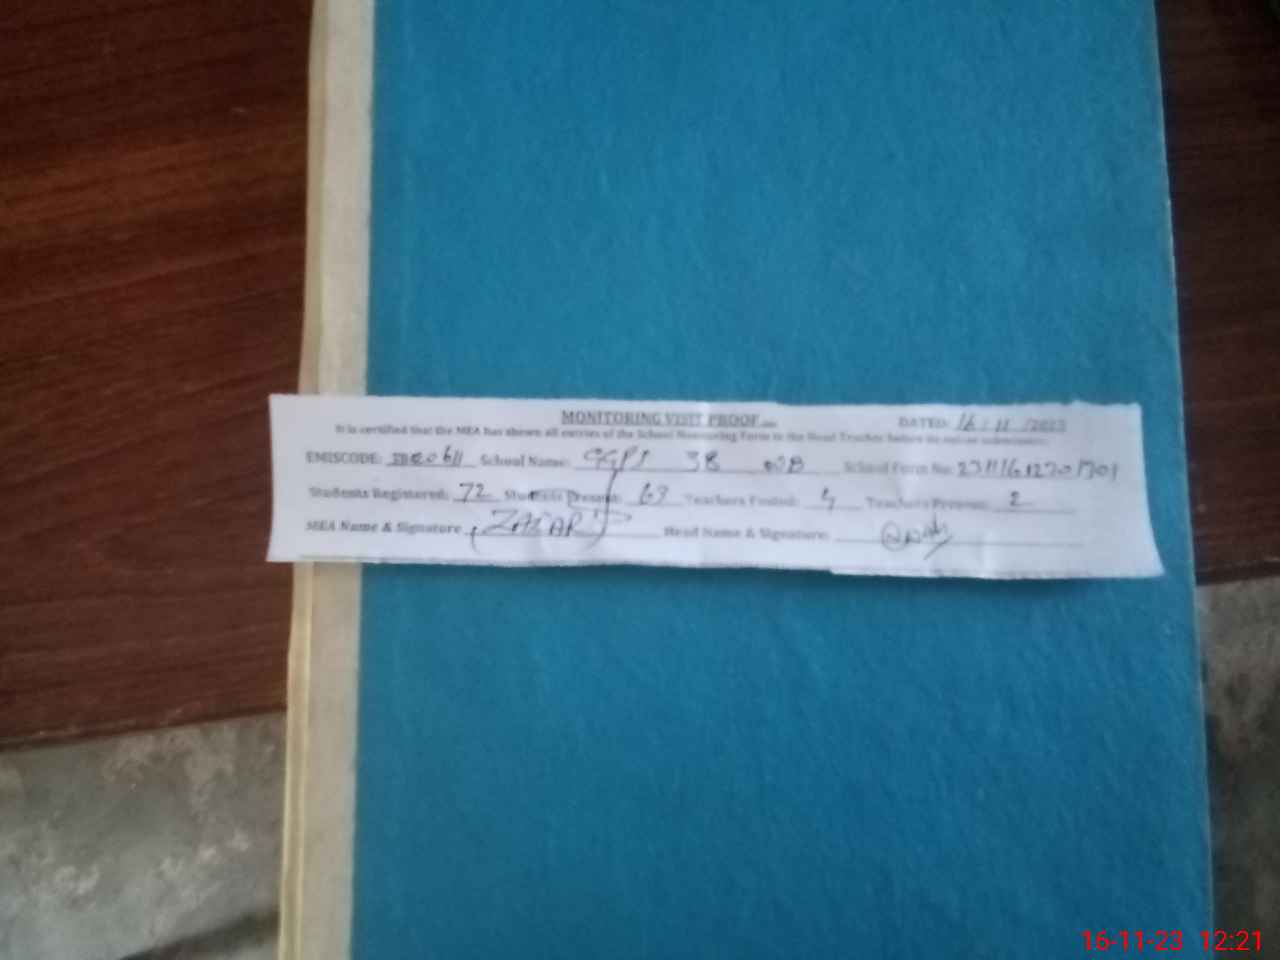 MONITORING VISIT PROOF DATED: 16 / 11 /2023
It is certified that the MEA has shown all entries of the School Monitoring Form to the Head Teacher before its
EMISCODE: School Name: GGPS 38 School Form No: 231116122701701
Students Registered: 72 Students Present: 63 Teachers Posted: 4 Teachers Present: 2
MEA Name & Signature ZAFAR Head Name & Signature:
16-11-23 12:21